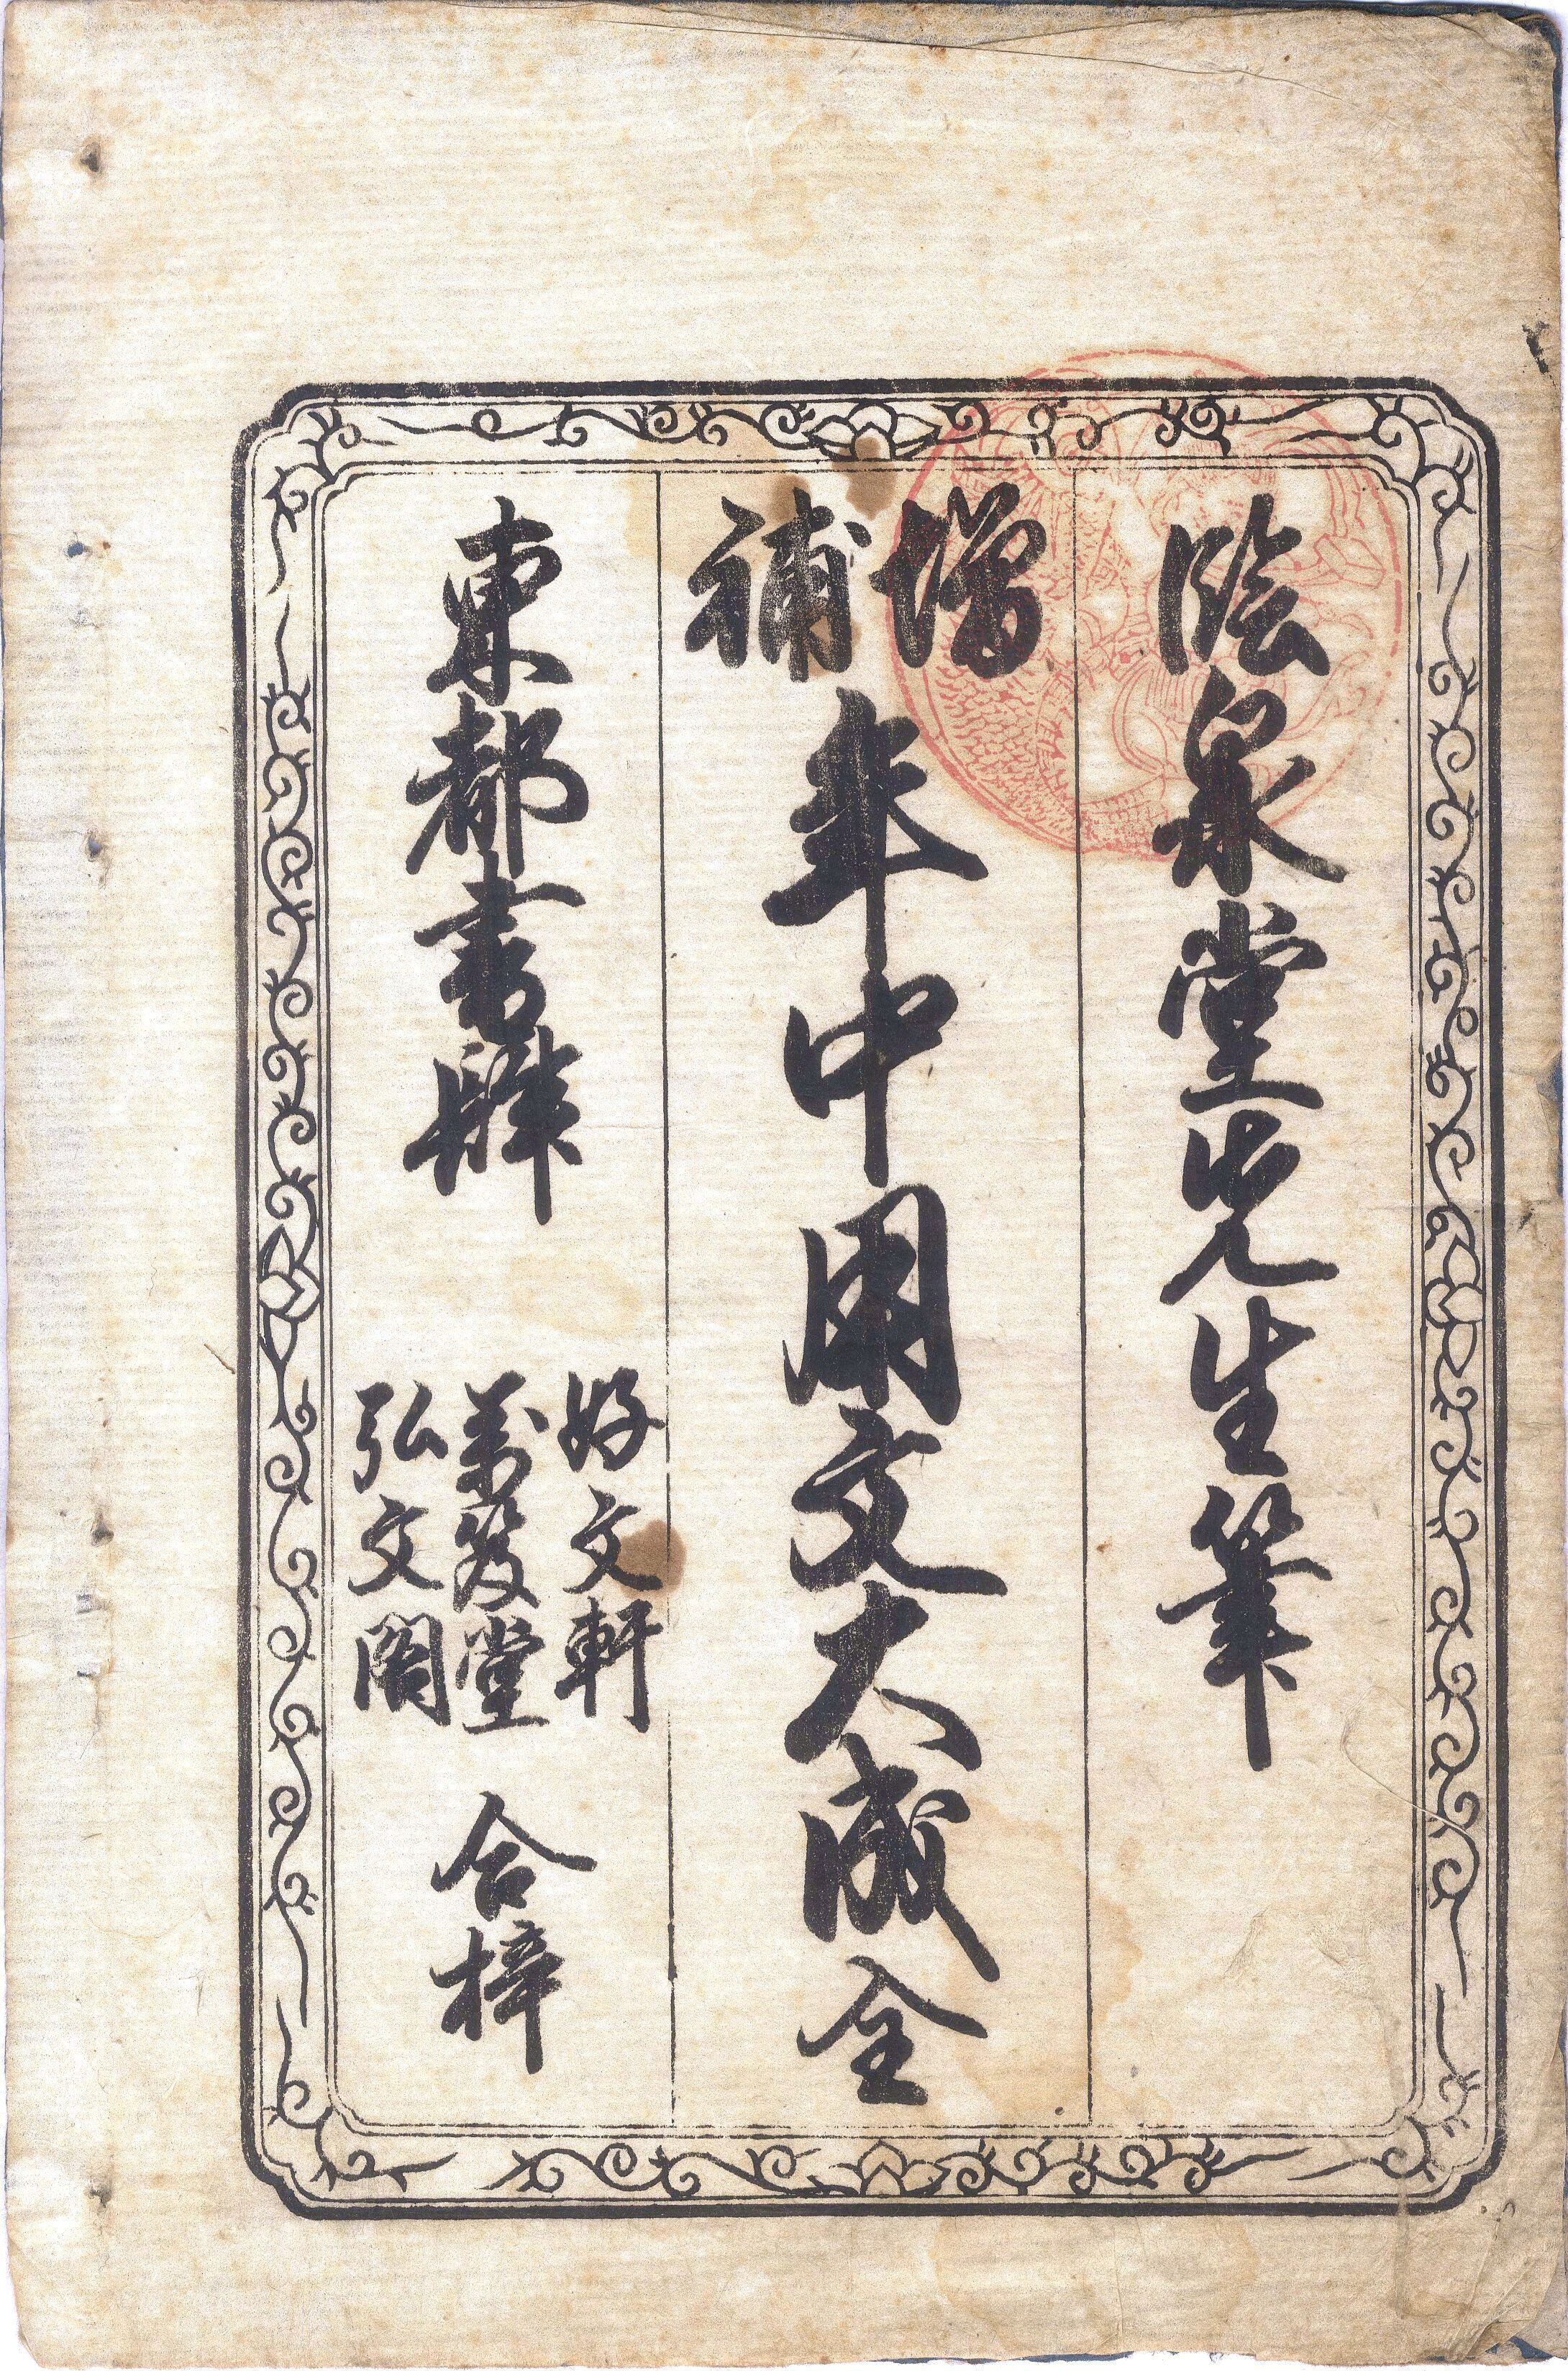 臨泉堂先生筆
増補
年中用文大成全
東都書肆
好文軒
萬笈堂
弘文閣
合梓